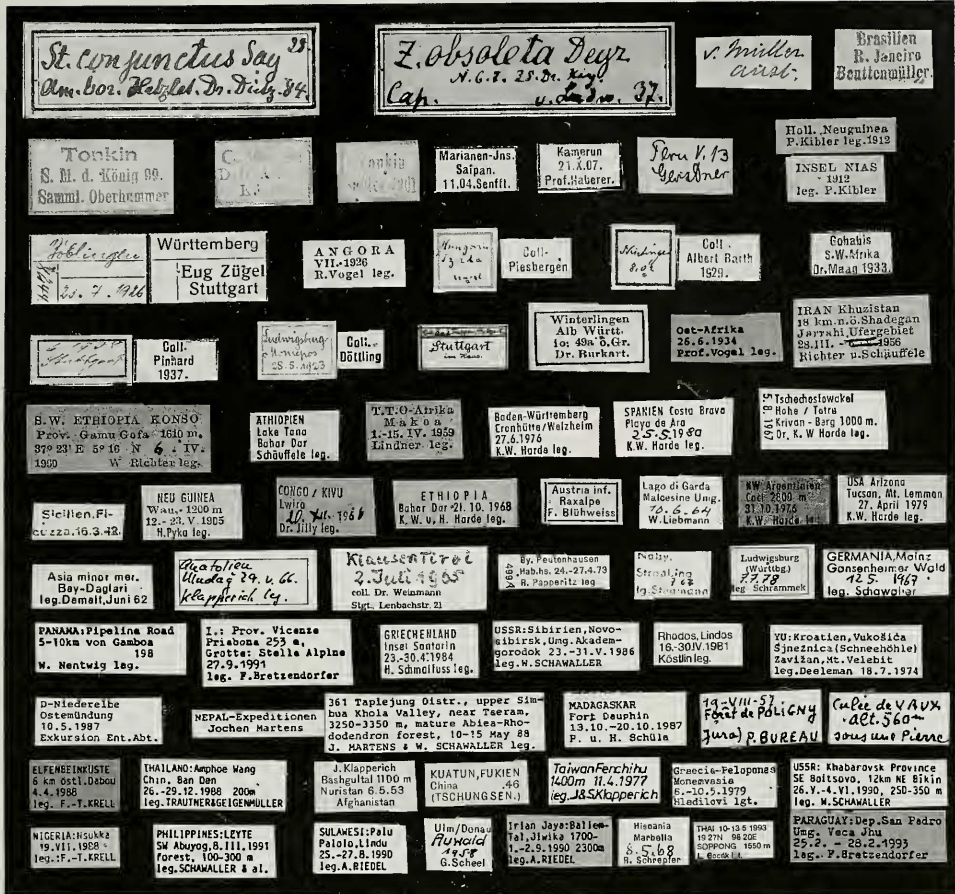 St. conjunctus Say 28.
Am. bor. Hetzlet. Dr. Dietz. 84.
Z. obsoleta Deyr
N.G.I. 28. Dr. Kig
Cap. v. Ludw. 37.
v. Müller
aust.
Brasilien
R. Janeiro
Beuttenmüller.
Tonkin
S. M. d. König 99.
Samml. Oberhummer
Tonkin
Marianen-Jns.
Saipan.
11.04.Senfft.
Kamerun
21.X.07.
Prof.Haberer.
Peru V. 13
Gerstner
Holl. Neuguinea
P.Kibler leg.1912
INSEL NIAS
1912
leg. P.Kibler
Böblingen
25. 7. 1926
Württemberg
Eug Zügel
Stuttgart
ANGORA
VII.-1926
R.Vogel leg.
Coll.
Piesbergen
8.02
Coll.
Albert Barth
1929.
Gohabis
S.W.Afrika
Dr.Maag 1933.
Stuttgart
Coll.
Pinhard
1937.
Ludwigsburg
25.5.1923
Coll.
Döttling
Stuttgart
im Haus.
Winterlingen
Alb Württ.
io: 49a ö.Gr.
Dr. Burkart.
Ost-Afrika
26.6.1934
Prof.Vogel leg.
IRAN Khuzistan
18 km.n.ö.Shadegan
Jarrahi,Ufergebiet
28.III. - 1956
Richter u.Schäuffele
S.W. ETHIOPIA KONSO
Prov. Gamu Gofa 1610 m.
37° 23' E 5° 16 N 6. IV.
1960 W Richter leg.
ÄTHIOPIEN
Lake Tana
Bahar Dar
Schäuffele leg.
T.T.O-Afrika
Makoa
1.-15. IV. 1959
Lindner leg.
Baden-Württemberg
Cronhütte/Welzheim
27.6.1976
K.W. Harde leg.
SPANIEN Costa Brava
Playa de Aro
25.5.1980
K.W. Harde leg.
5. 8. 1967
Tschechoslowakei
Hohe / Tatra
Krivan - Berg 1000 m.
Dr. K. W Harde leg.
Sicilien,Fi-
cuzza.16.3.42.
NEU GUINEA
Wau,- 1200 m
12.- 23. V. 1985
H.Pyka leg.
CONGO / KIVU
Lwiro
Dr. Jilly leg.
ETHIOPIA
Bahar Dar -21. 10. 1968
K. W. u. H. Harde leg.
Austria inf.
Raxalpe
F. Blühweiss
Lago di Garda
Malcesine Umg.
10.6.64
W.Liebmann
NW Argentinien
Coel 2800 m
31.10.1976
K.W. Harde leg.
USA Arizona
Tucson, Mt. Lemmon
27. April 1979
K.W. Harde leg.
Asia minor mer.
Bey-Daglari
leg.Demelt,Juni 62
Anatolien
Uludag 29. v. 66.
Klapperich leg.
Klausen Tirol
2. Juli 1965
coll. Dr. Weinmann
Stgt., Lenbachstr. 21
499A
By. Peutenhausen
Hab.hs. 24.-27.4.73
R. Papperitz leg
Ludwigsburg
(Württbg.)
7.7.78
leg Schrammek
GERMANIA,Mainz
Gonsenheimer Wald
12 5. 1967
leg. Schawaller
PANAMA:Pipeline Road
5-10km von Gamboa
198
W. Nentwig leg.
I.: Prov. Vicenza
Priabona 253 m,
Grotte: Stella Alpina
27.9.1991
leg. F.Bretzendorfer
GRIECHENLAND
Insel Santorin
23.-30.4.1984
H. Schmalfuss leg.
USSR:Sibirien,Novo-
sibirsk,Umg.Akadem-
gorodok 23.-31.V.1986
leg.W.SCHAWALLER
Rhodos,Lindos
16.-30.IV.1981
Köstlin leg.
YU:Kroatien,Vukošića
Sjneznica(Schneehöhle)
Zavižan,Mt.Velebit
leg.Deeleman 18.7.1974
D-Niederelbe
Ostemündung
10.5.1987
Exkursion Ent.Abt.
NEPAL-Expeditionen
Jochen Martens
361 Taplejung Distr., upper Sim-
bua Khola Valley, near Tseram,
3250-3350 m, mature Abies-Rho-
dodendron forest, 10-15 May 88
J. MARTENS & W. SCHAWALLER leg.
MADAGASKAR
Fort Dauphin
13.10.-20.10.1987
P. u. H. Schüla
19-VIII-57
Forêt de POLIGNY
(Jura) P. BUREAU
Culée de VAUX
alt. 560m
sous une Pierre
ELFENBEINKÜSTE
6 km östl.Dabou
4.4.1988
leg. F.-T.KRELL
THAILAND:Amphoe Wang
Chin, Ban Den
26.-29.12.1988 200m
leg.TRAUTNER&GEIGENMÜLLER
J. Klapperich
Bashgultal 1100 m
Nuristan 6.5.53
Afghanistan
KUATUN,FUKIEN
China .46
(TSCHUNG SEN.)
Taiwan Fenchihu
1400m 11.4.1977
leg.J&S.Klapperich
Graecia-Peloponnes
Monemvasia
6.-10.5.1979
Hladilovi lgt.
USSR: Khabarovsk Province
SE Boitsovo, 12km NE Bikin
26.V.-4.VI.1990, 250-350 m
leg. W.SCHAWALLER
NIGERIA:Nsukka
19.VII.1988
leg.:F.-T.KRELL
PHILIPPINES:LEYTE
SW Abuyog,8.III.1991
forest, 100-300 m
leg.SCHAWALLER & al.
SULAWESI:Palu
Palolo,Lindu
25.-27.8.1990
leg.A.RIEDEL
Ulm/Donau
Auwald
1958
G.Scheel
Irian Jaya:Baliem-
Tal,Jiwika 1700-
1.-2.9.1990 2300m
leg.A.RIEDEL
Hispania
Marbella
8.5.68
R. Schrepfer
THAI 10-13 5 1993
19 27N 98 20E
SOPPONG 1550 m
PARAGUAY:Dep.San Pedro
Umg. Yaca Jhu
25.2. - 28.2.1993
leg. F.Bretzendorfer